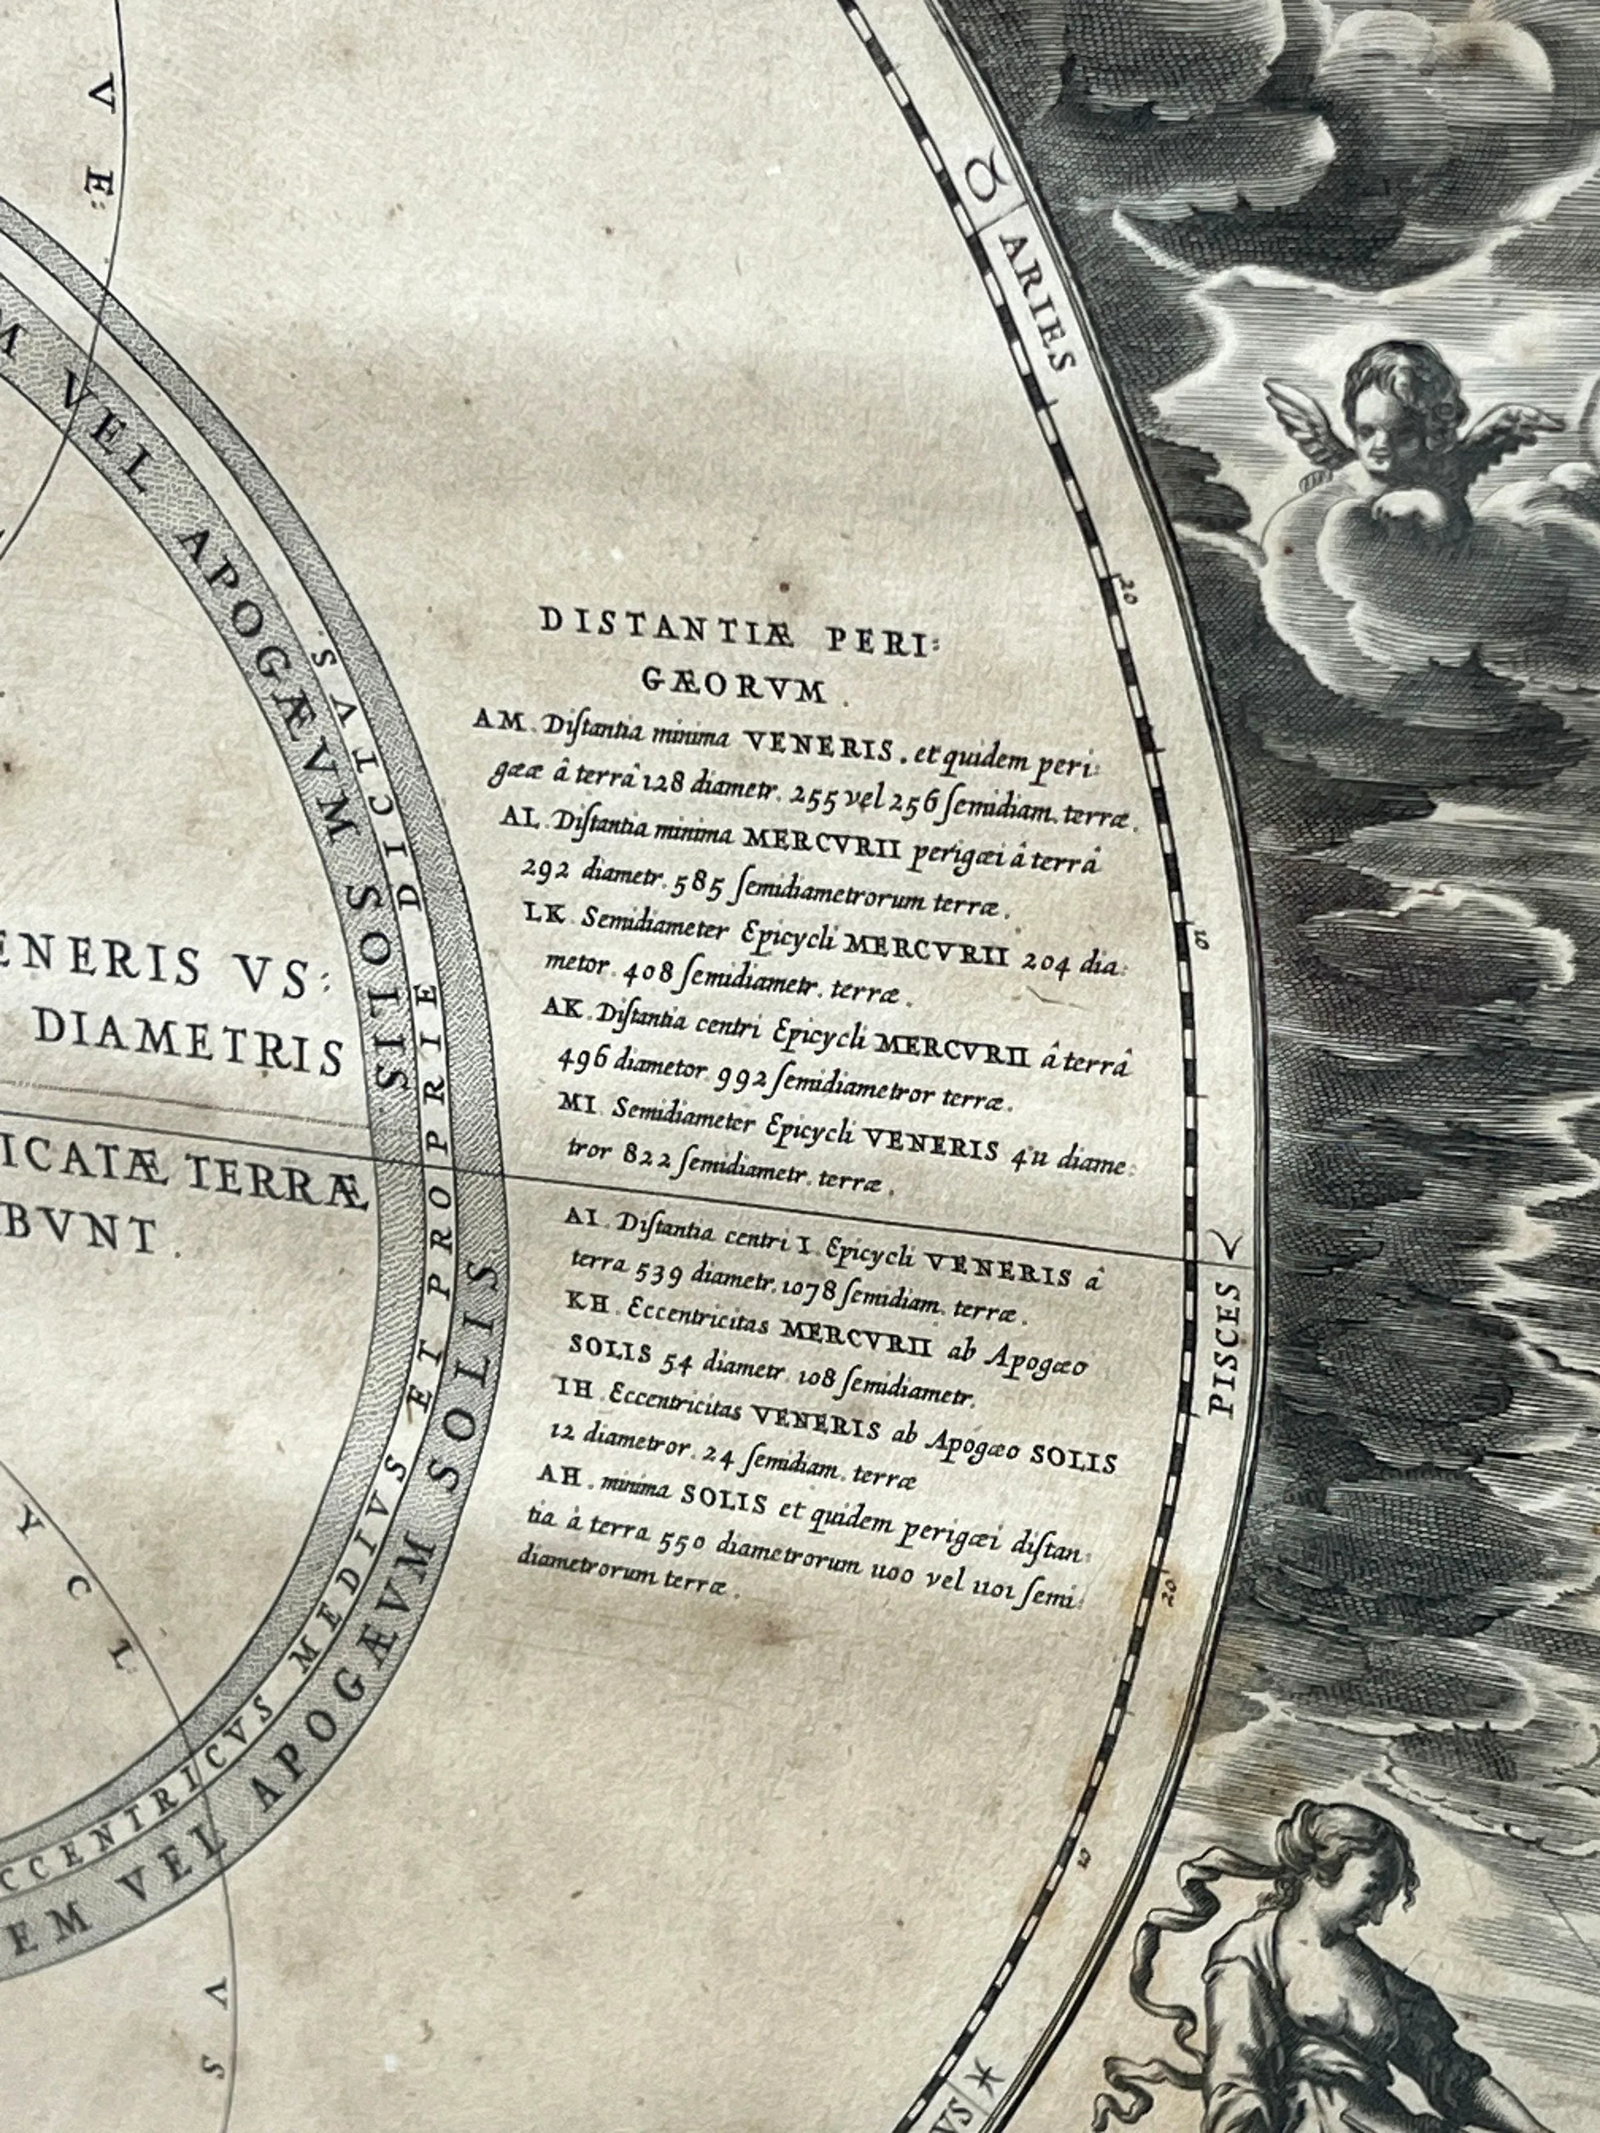 V E:
♉
ARIES
M VEL APOGÆVM SOLIS
ECCENTRICVS MEDIVS ET PROPRIE DICTVS.
EM VEL APOGÆVM SOLIS
20
DISTANTIÆ PERI:
GÆORVM.
AM. Diſtantia minima VENERIS, et quidem peri:
gææ â terrâ 128 diametr. 255 vel 256 ſemidiam. terræ.
AL. Diſtantia minima MERCVRII perigæi â terrâ
292 diametr. 585 ſemidiametrorum terræ.
LK. Semidiameter Epicycli MERCVRII 204 dia:
metor. 408 ſemidiametr. terræ.
AK. Diſtantia centri Epicycli MERCVRII â terrâ
496 diametor. 992 ſemidiametror terræ.
MI. Semidiameter Epicycli VENERIS 411 diame:
tror 822 ſemidiametr. terræ.
AI. Diſtantia centri I. Epicycli VENERIS â
terra 539 diametr. 1078 ſemidiam. terræ.
KH. Eccentricitas MERCVRII ab Apogæo
SOLIS 54 diametr. 108 ſemidiametr.
IH. Eccentricitas VENERIS ab Apogæo SOLIS
12 diametror. 24 ſemidiam. terræ
AH. minima SOLIS et quidem perigæi diſtan:
tia à terra 550 diametrorum 1100 vel 1101 ſemi:
diametrorum terræ.
10
ENERIS VS:
DIAMETRIS
ICATÆ TERRÆ
BVNT.
PISCES
20
Y C L:
V S
♓
VS